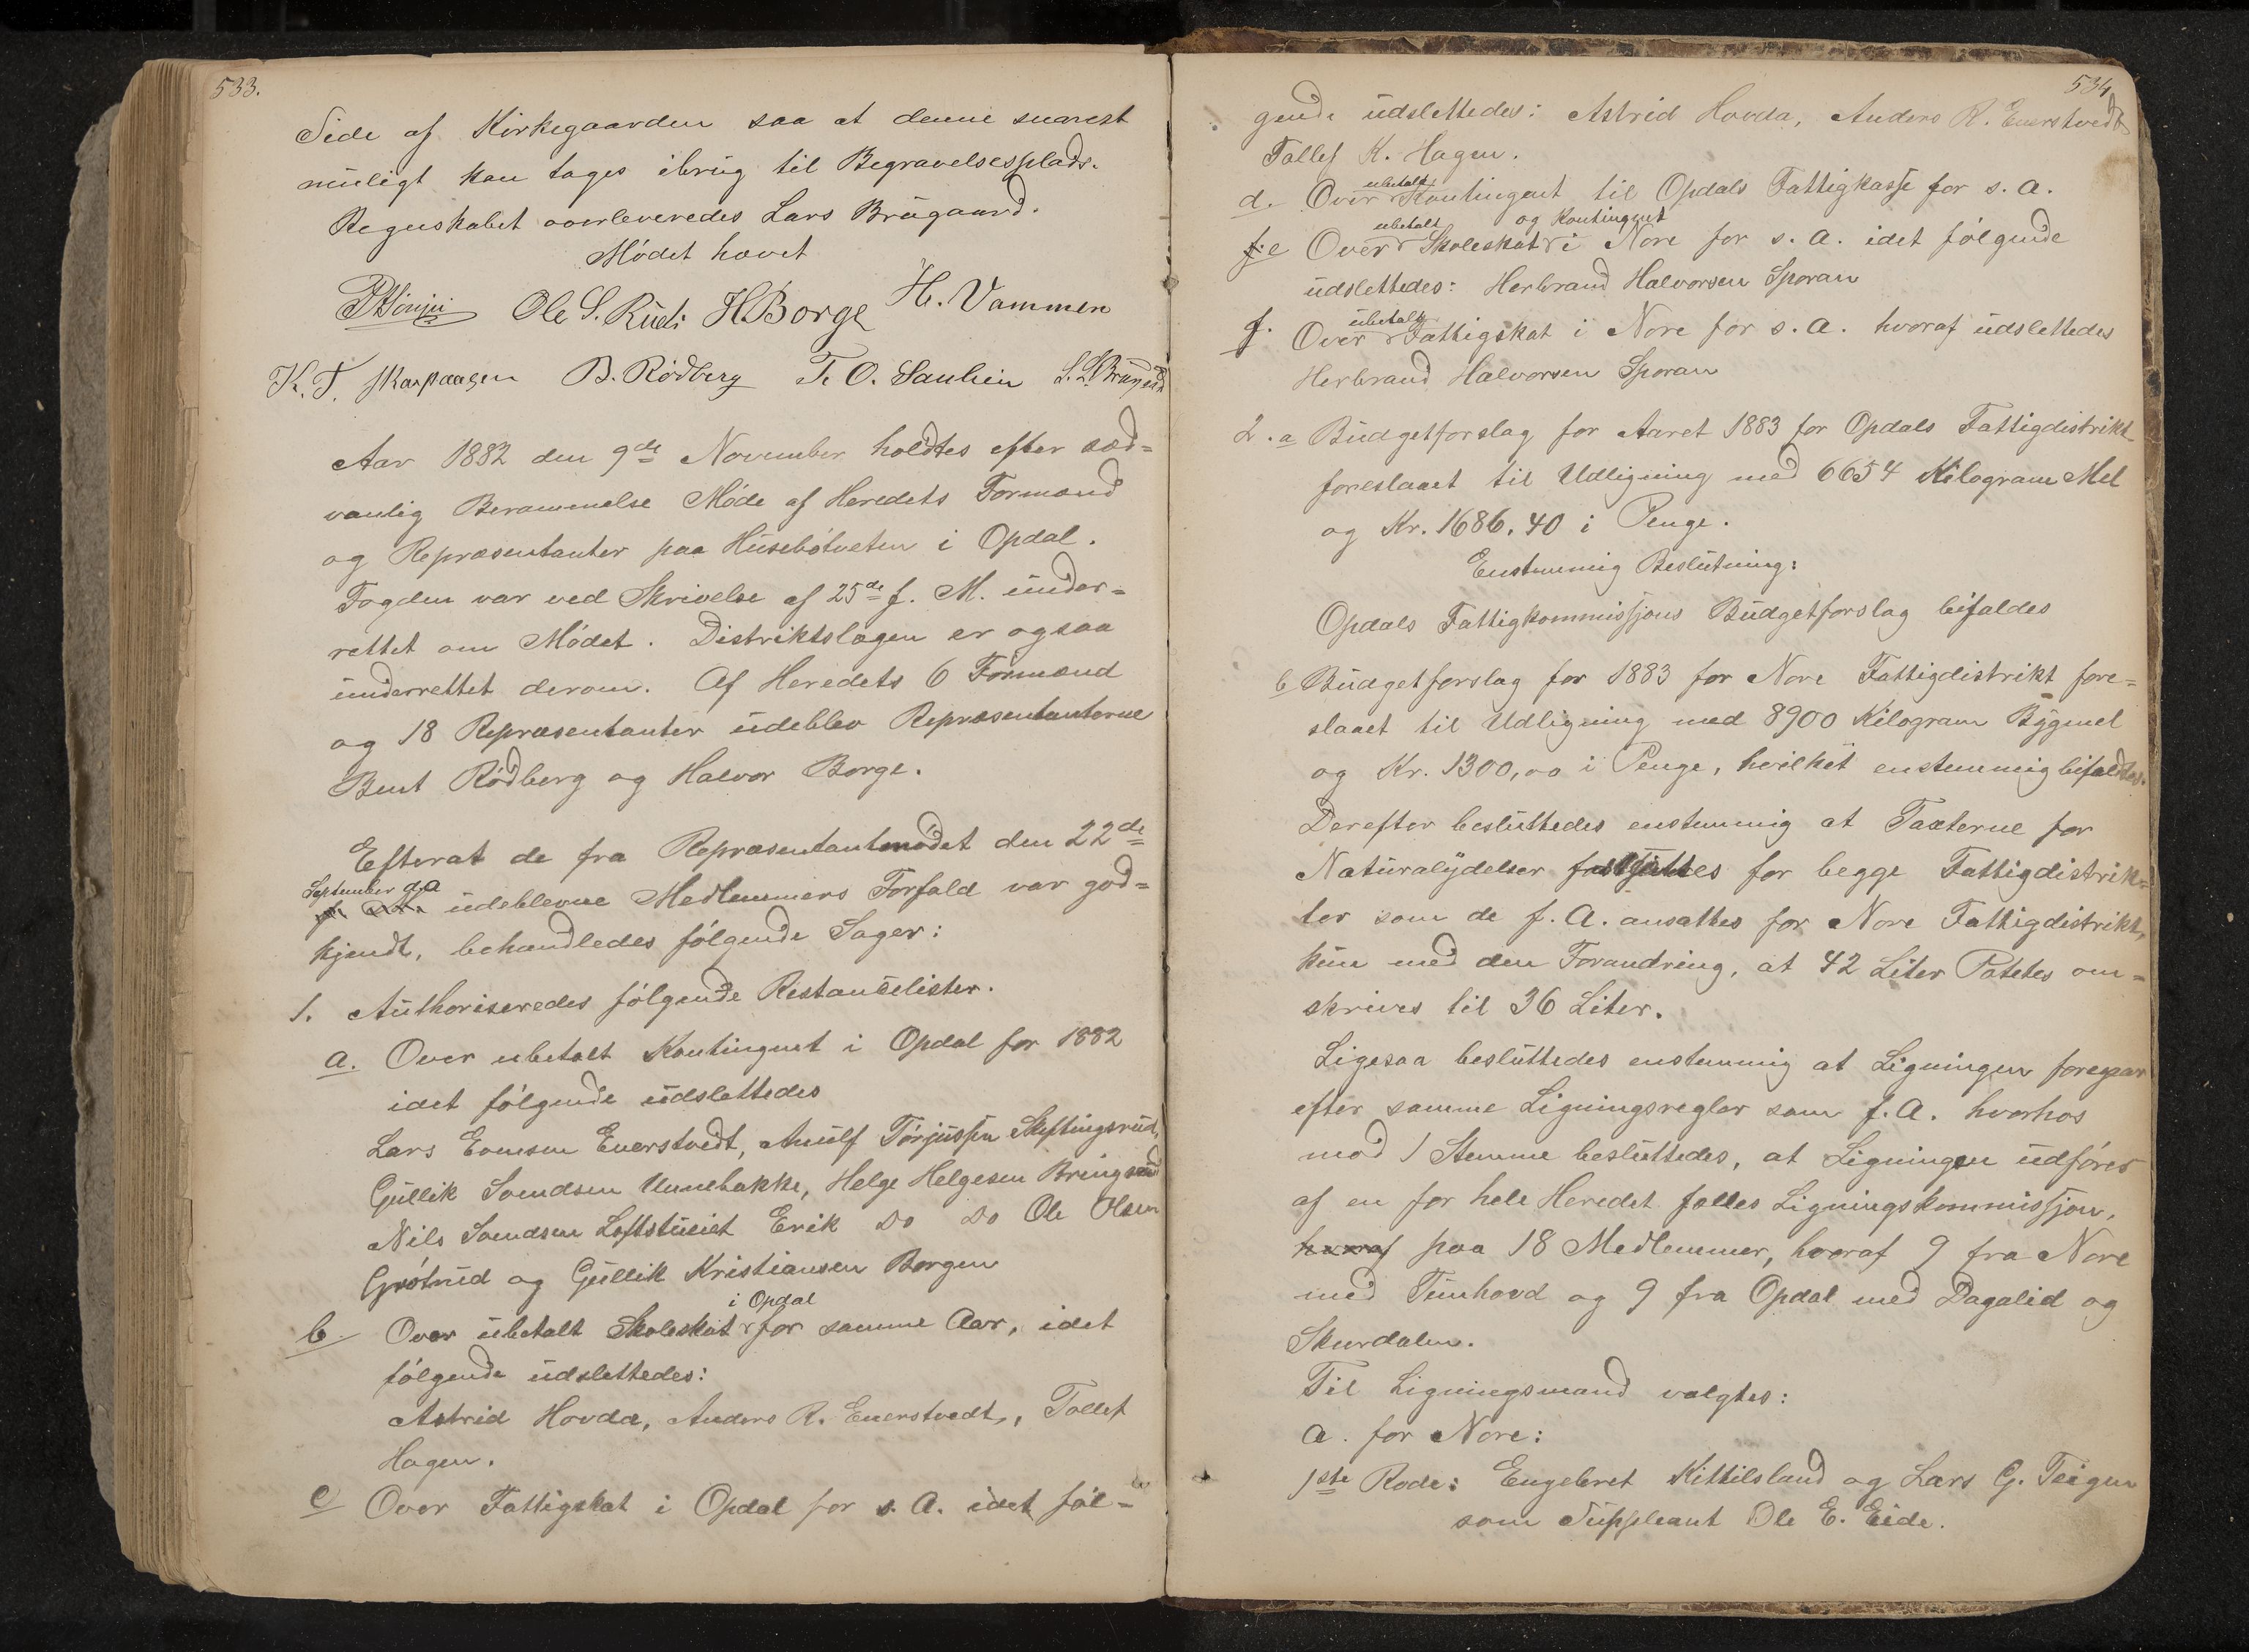 533.
Side af Kirkegaarden saa at denne snarest
muligt kan tages ibrug til Begravelsesplads.
Regnskabet overleveredes Lars Brugaard.
Mödet hævet
Ole S. Rudi H Borge H. Vammen
K. T. Skarpaasen B. Rödberg T. O. Sauhein
Aar 1882 den 9de November holdtes efter sæd=
vanlig Berammelse Möde af Heredets Formænd
og Repræsentanter paa Husebötveten i Opdal.
Fogden var ved Skrivelse af 25de f. M. under=
rettet om Mödet. Distriktslægen er ogsaa
underrettet derom. Af Heredets 6 Formænd
og 18 Repræsentanter udeblev Repræsentanterne
Bent Rödberg og Halvor Borge.
Efterat de fra Repræsentantmödet den 22de
September d. A udeblevne Medlemmers Forfald var god=
kjendt, behandledes fölgende Sager:
1. Authoriseredes fölgende Restancelister.
a. Over ubetalt Kontingent i Opdal for 1882
idet fölgende udslettedes
Lars Evensen Enerstvedt, Anulf Törjussen Skiftingsrud,
Gullik Svendsen Unnebakke, Helge Helgesen Bringsrud
Nils Svendsen Loftstueiet Erik Do Do Ole Olsen
Grötrud og Gullik Kristiansen Borgen
b. Over ubetalt Skoleskat i Opdal for samme Aar, idet
fölgende udslettedes:
Astrid Hovda, Anders R. Enerstvedt, Tollef
Hagen.
c Over Fattigskat i Opdal for s. A. idet föl=
534
gende udslettedes: Astrid Hovda, Anders R. Enerstvedt
Tollef K. Hagen.
d. Over ubetalt Kontingent til Opdals Fattigkasse for s. A.
e Over ubetalt Skoleskat og Kontingent i Nore for s. A. idet fölgende
udslettedes: Herbrand Halvorsen Sporan
f. Over ubetalt Fattigskat i Nore for s. A. hvoraf udslettedes
Herbrand Halvorsen Sporan
2. a Budgetforslag for Aaret 1883 for Opdals Fattigdistrikt
foreslaaet til Udligning med 6654 Kilogram Mel
og Kr. 1686.40 i Penge.
Enstemmig Beslutning:
Opdals Fattigkommissjons Budgetforslag bifaldes
b Budgetforslag for 1883 for Nore Fattigdistrikt fore=
slaaet til Udligning med 8900 Kilogram Bygmel
og Kr. 1300,00 i Penge, hvilket enstemmig bifaldtes.
Derefter besluttedes enstemmig at Taxterne for
Naturalydelser fastsættes for begge Fattigdistrik=
ter som de f. A. ansattes for Nore Fattigdistrikt,
kun med den Forandring, at 42 Liter Potetes om=
skrives til 36 Liter.
Ligesaa besluttedes enstemmig at Ligningen foregaar
efter samme Ligningsregler som f. A. hvorhos
mod 1 Stemme besluttedes, at Ligningen udföres
af en for hele Heredet fælles Ligningskommissjon,
hvoraf paa 18 Medlemmer, hvoraf 9 fra Nore
med Tunhovd og 9 fra Opdal med Dagalid og
Skurdalen.
Til Ligningsmænd valgtes:
a. for Nore:
1ste Rode: Engebret Kittilsland og Lars G. Teigen
som Suppleant Ole E. Eide.